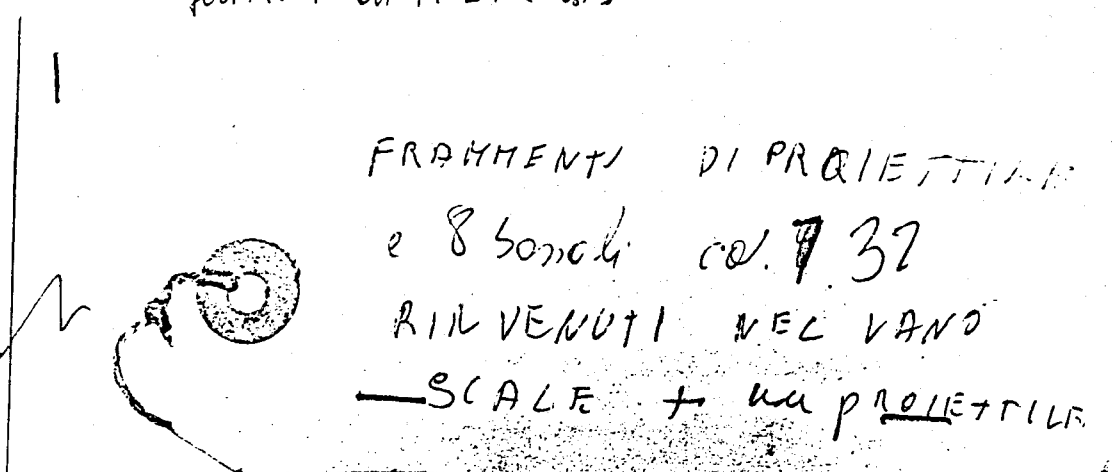 FRAMMENTI DI PROIETTILE
e 8 bossoli cal. 7.32
RINVENUTI NEL VANO
SCALE + un PROIETTILE